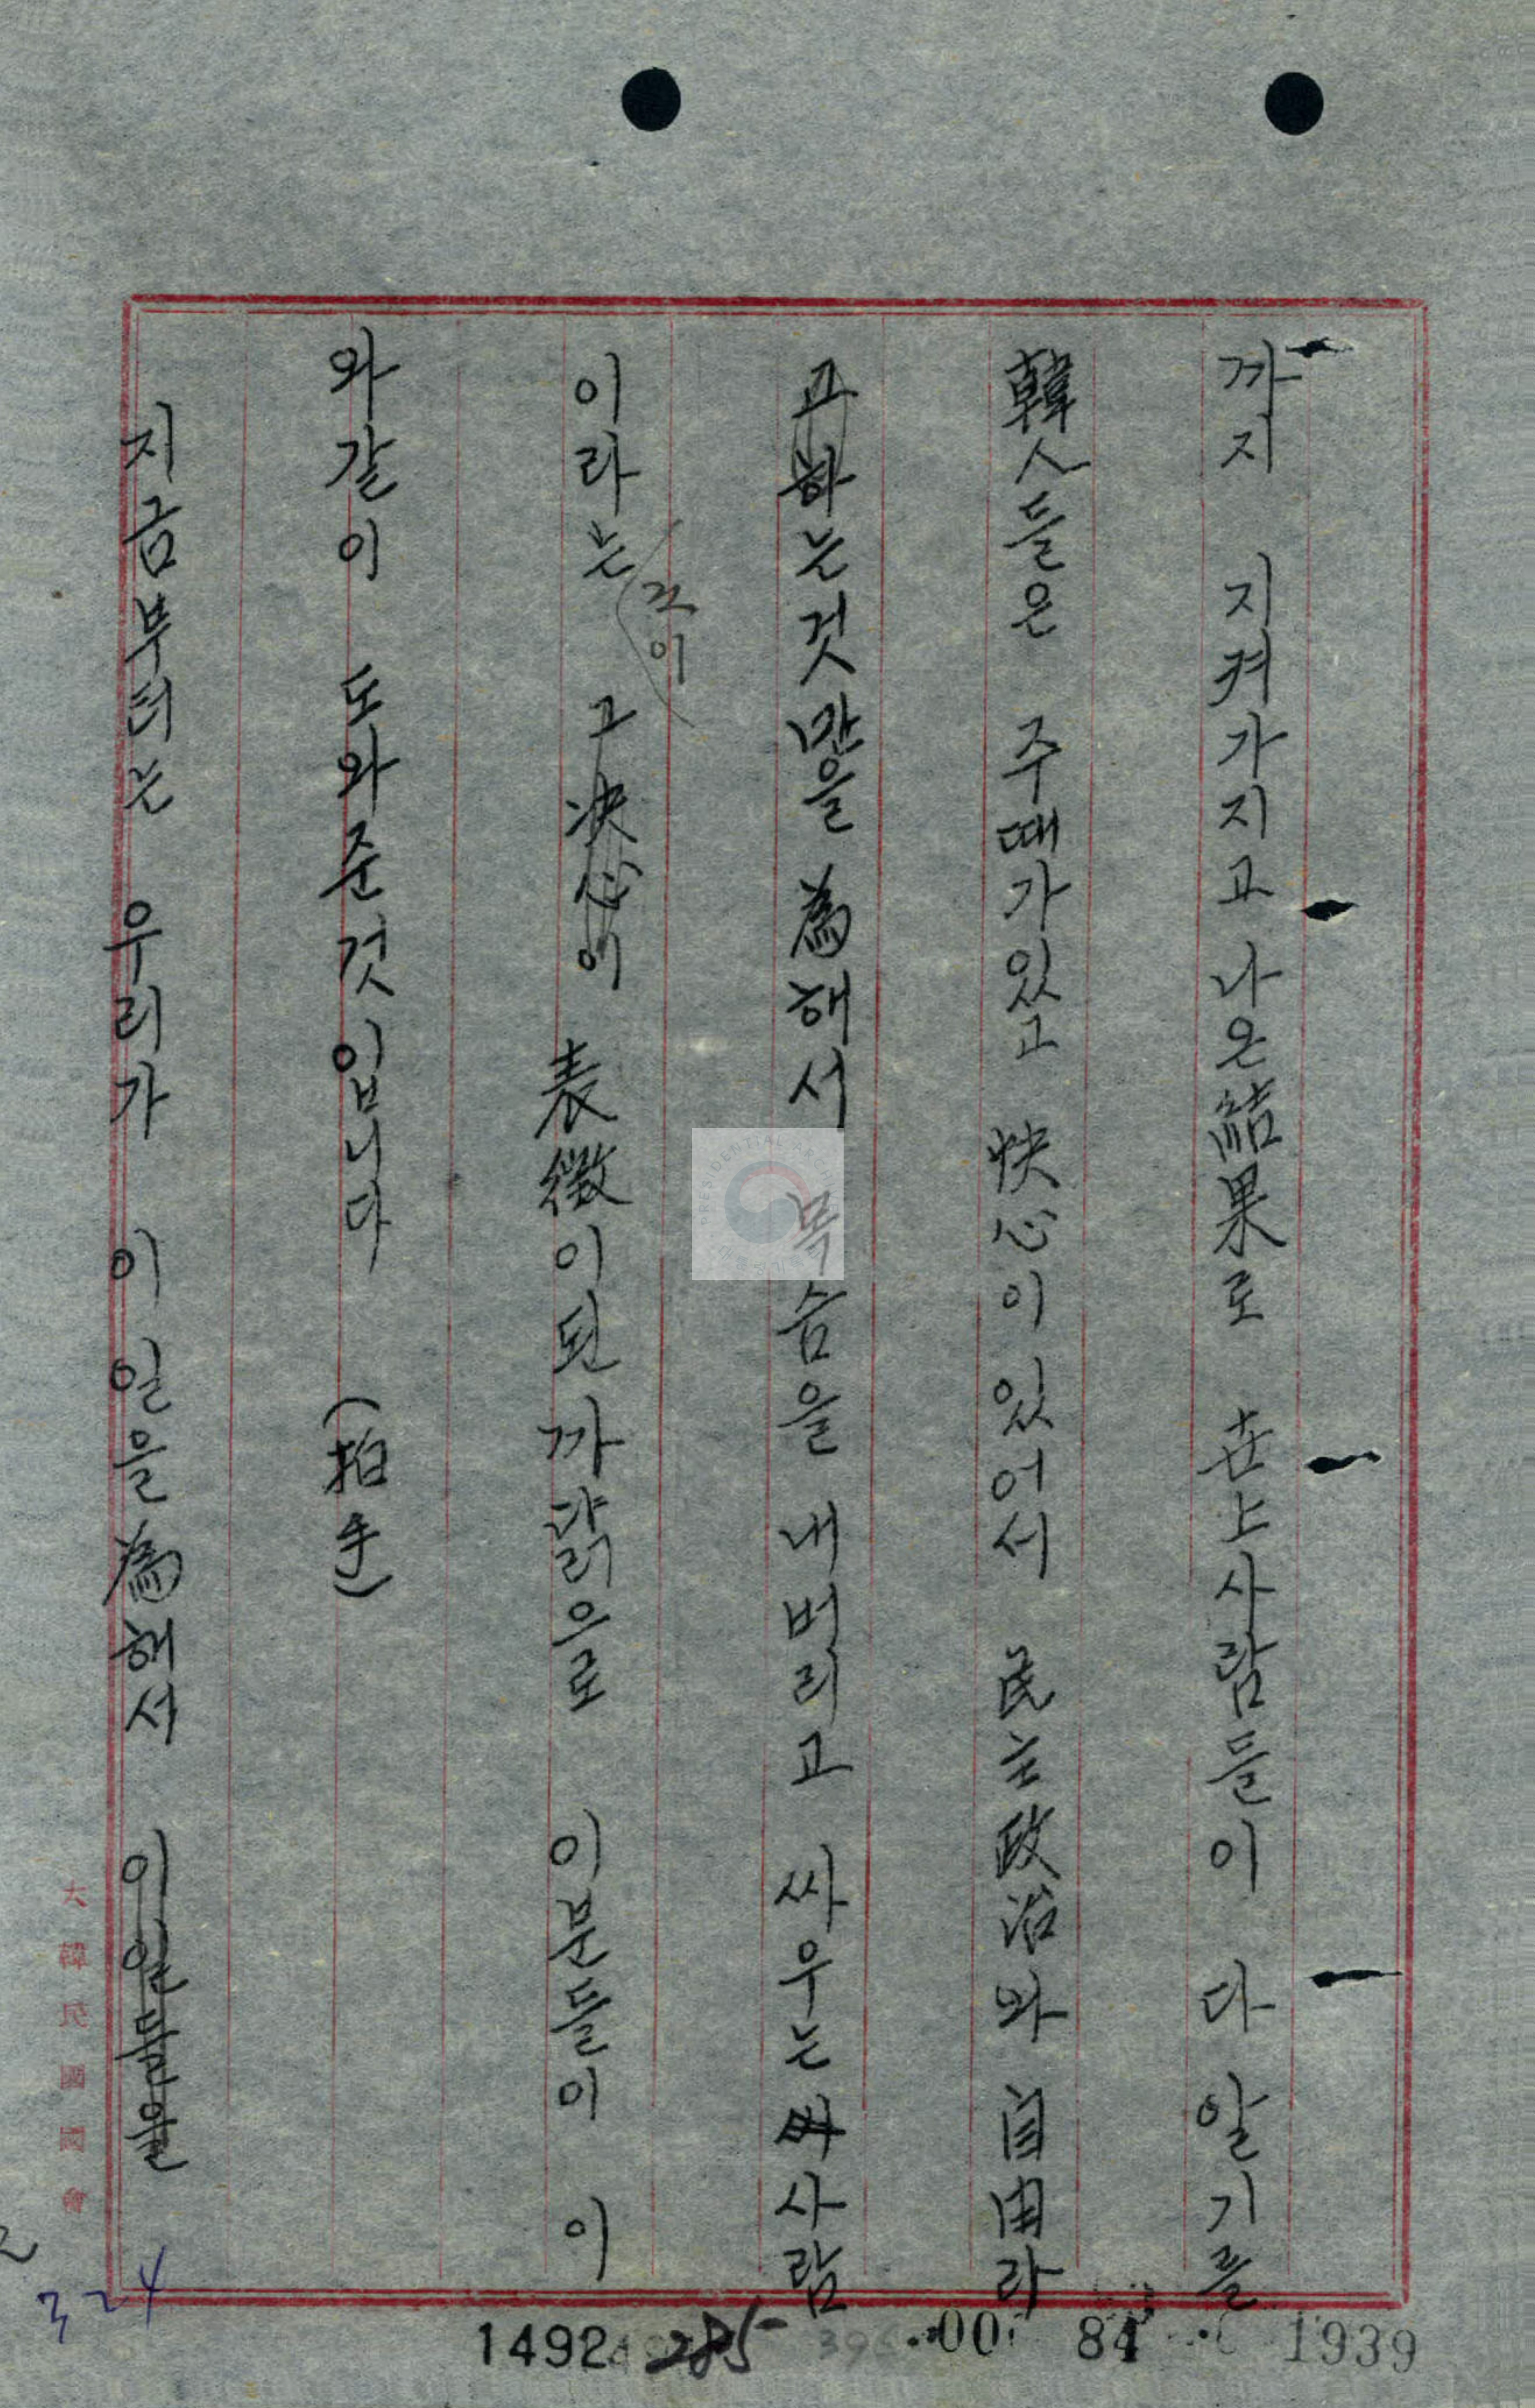 까지 지켜가지고 나온 結果로 世上사람들이 다 알기를
韓人들은 주때가있고 快心이 있어서 民主政治와 自由라
고하는것만을 爲해서 목숨을 내버리고 싸우는 사람
이라는 그決心이 表徵이된 까닭으로 이분들이 이
것이
와같이 도와준것입니다 (拍手)
지금부터는 우리가 이일을 爲해서
大韓民國國會
324
1492
285
396
00
84
1939